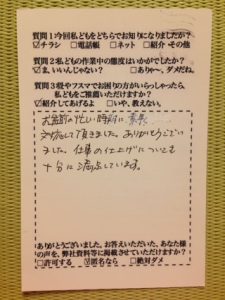 質問1今回私どもをどちらでお知りになりましたか?
☑チラシ □電話帳 □ネット □紹介・その他
質問2私どもの作業中の態度はいかがでしたか?
☑ま、いいんじゃない? □ありゃ〜、ダメだね。
質問3畳やフスマでお困りの方がいらっしゃったら、
私どもをご推薦いただけますか?
☑紹介してあげるよ □いや、教えない。
お盆前の忙しい時期に
対応して頂きました。ありがとうござい
ました。仕事の仕上げについても
十分に満足しています。
ありがとうございました。お答えいただいた、あなた様
の声を、弊社資料等に掲載させていただけますか?
□許可する ☑匿名なら □絶対ダメ